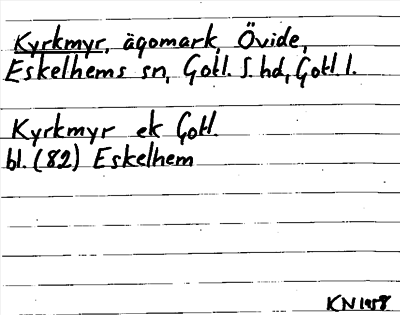 Kyrkmyr, ägomark, Övide,
Eskelhems sn, Gotl. S. hd, Gotl. l.
Kyrkmyr ek Gotl.
bl. (82) Eskelhem
KN 1958